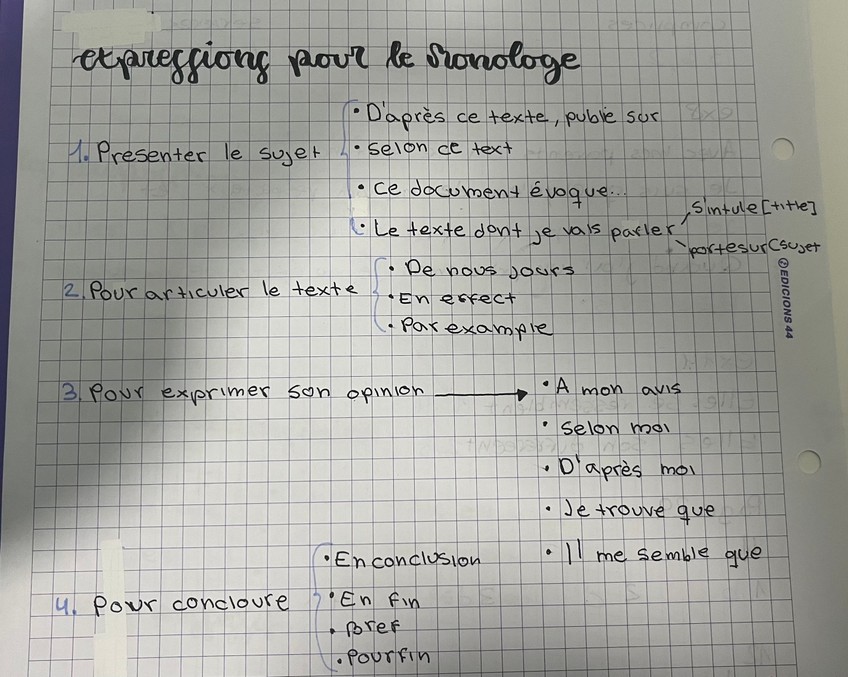 expressions pour le monologe
1. Presenter le sujet
• D'après ce texte, publié sur
• selon ce text
• ce document évoque...
• Le texte dont je vais parler
s'intule [title]
porte sur (sujet
2. Pour articuler le texte
• De nous jours
• En effect
• Par example
3. Pour exprimer son opinion
• A mon avis
• selon moi
• D'après moi
• Je trouve que
• Il me semble que
4. Pour concloure
• En conclusion
• En fin
• Bref
• Pour fin
EDICIONS 44